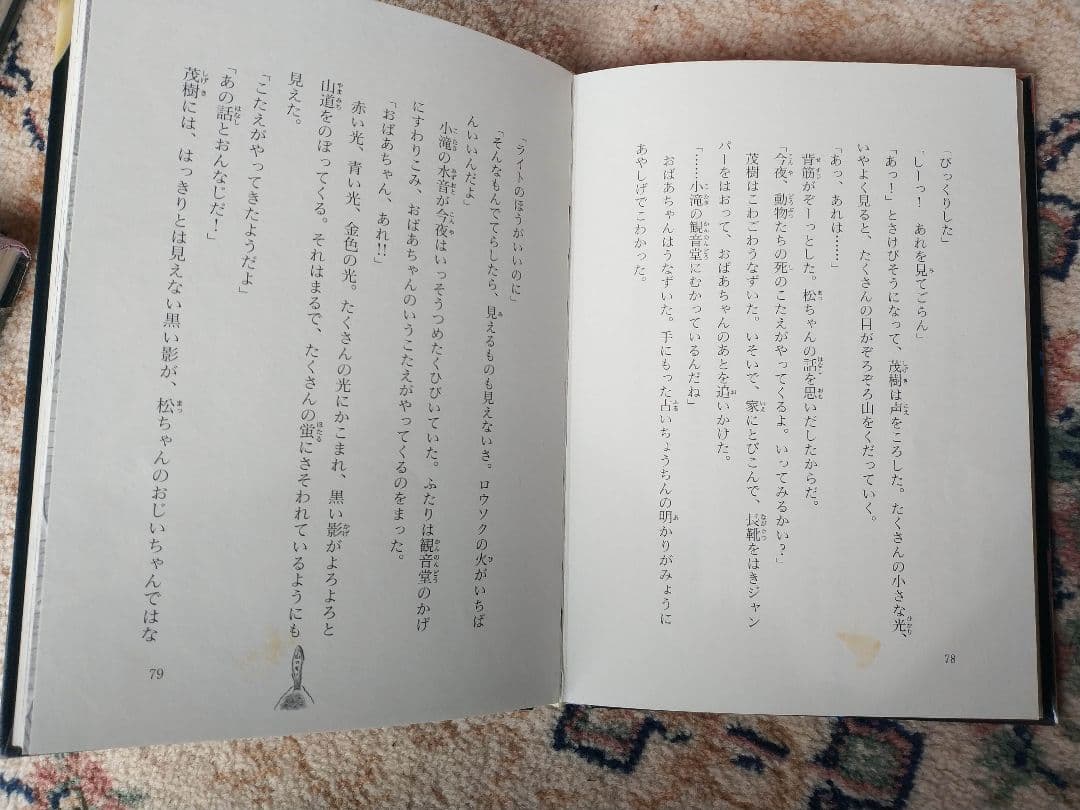 「びっくりした」
「しーっ！　あれを見てごらん」
「あっ！」とさけびそうになって、茂樹は声をころした。たくさんの小さな光、
いやよく見ると、たくさんの目がぞろぞろ山をくだっていく。
「あっ、あれは……」
背筋がぞーっとした。松ちゃんの話を思いだしたからだ。
「今夜、動物たちの死のこたえがやってくるよ。いってみるかい？」
茂樹はこわごわうなずいた。いそいで、家にとびこんで、長靴をはきジャン
パーをはおって、おばあちゃんのあとを追いかけた。
「……小滝の観音堂にむかっているんだね」
おばあちゃんはうなずいた。手にもった古いちょうちんの明かりがみょうに
あやしげでこわかった。
78
「ライトのほうがいいのに」
「そんなもんでてらしたら、見えるものも見えないさ。ロウソクの火がいちば
んいいんだよ」
小滝の水音が今夜はいっそうつめたくひびいていた。ふたりは観音堂のかげ
にすわりこみ、おばあちゃんのいうこたえがやってくるのをまった。
「おばあちゃん、あれ!!」
赤い光、青い光、金色の光。たくさんの光にかこまれ、黒い影がよろよろと
山道をのぼってくる。それはまるで、たくさんの蛍にさそわれているようにも
見えた。
「こたえがやってきたようだよ」
「あの話とおんなじだ！」
茂樹には、はっきりとは見えない黒い影が、松ちゃんのおじいちゃんではな
79